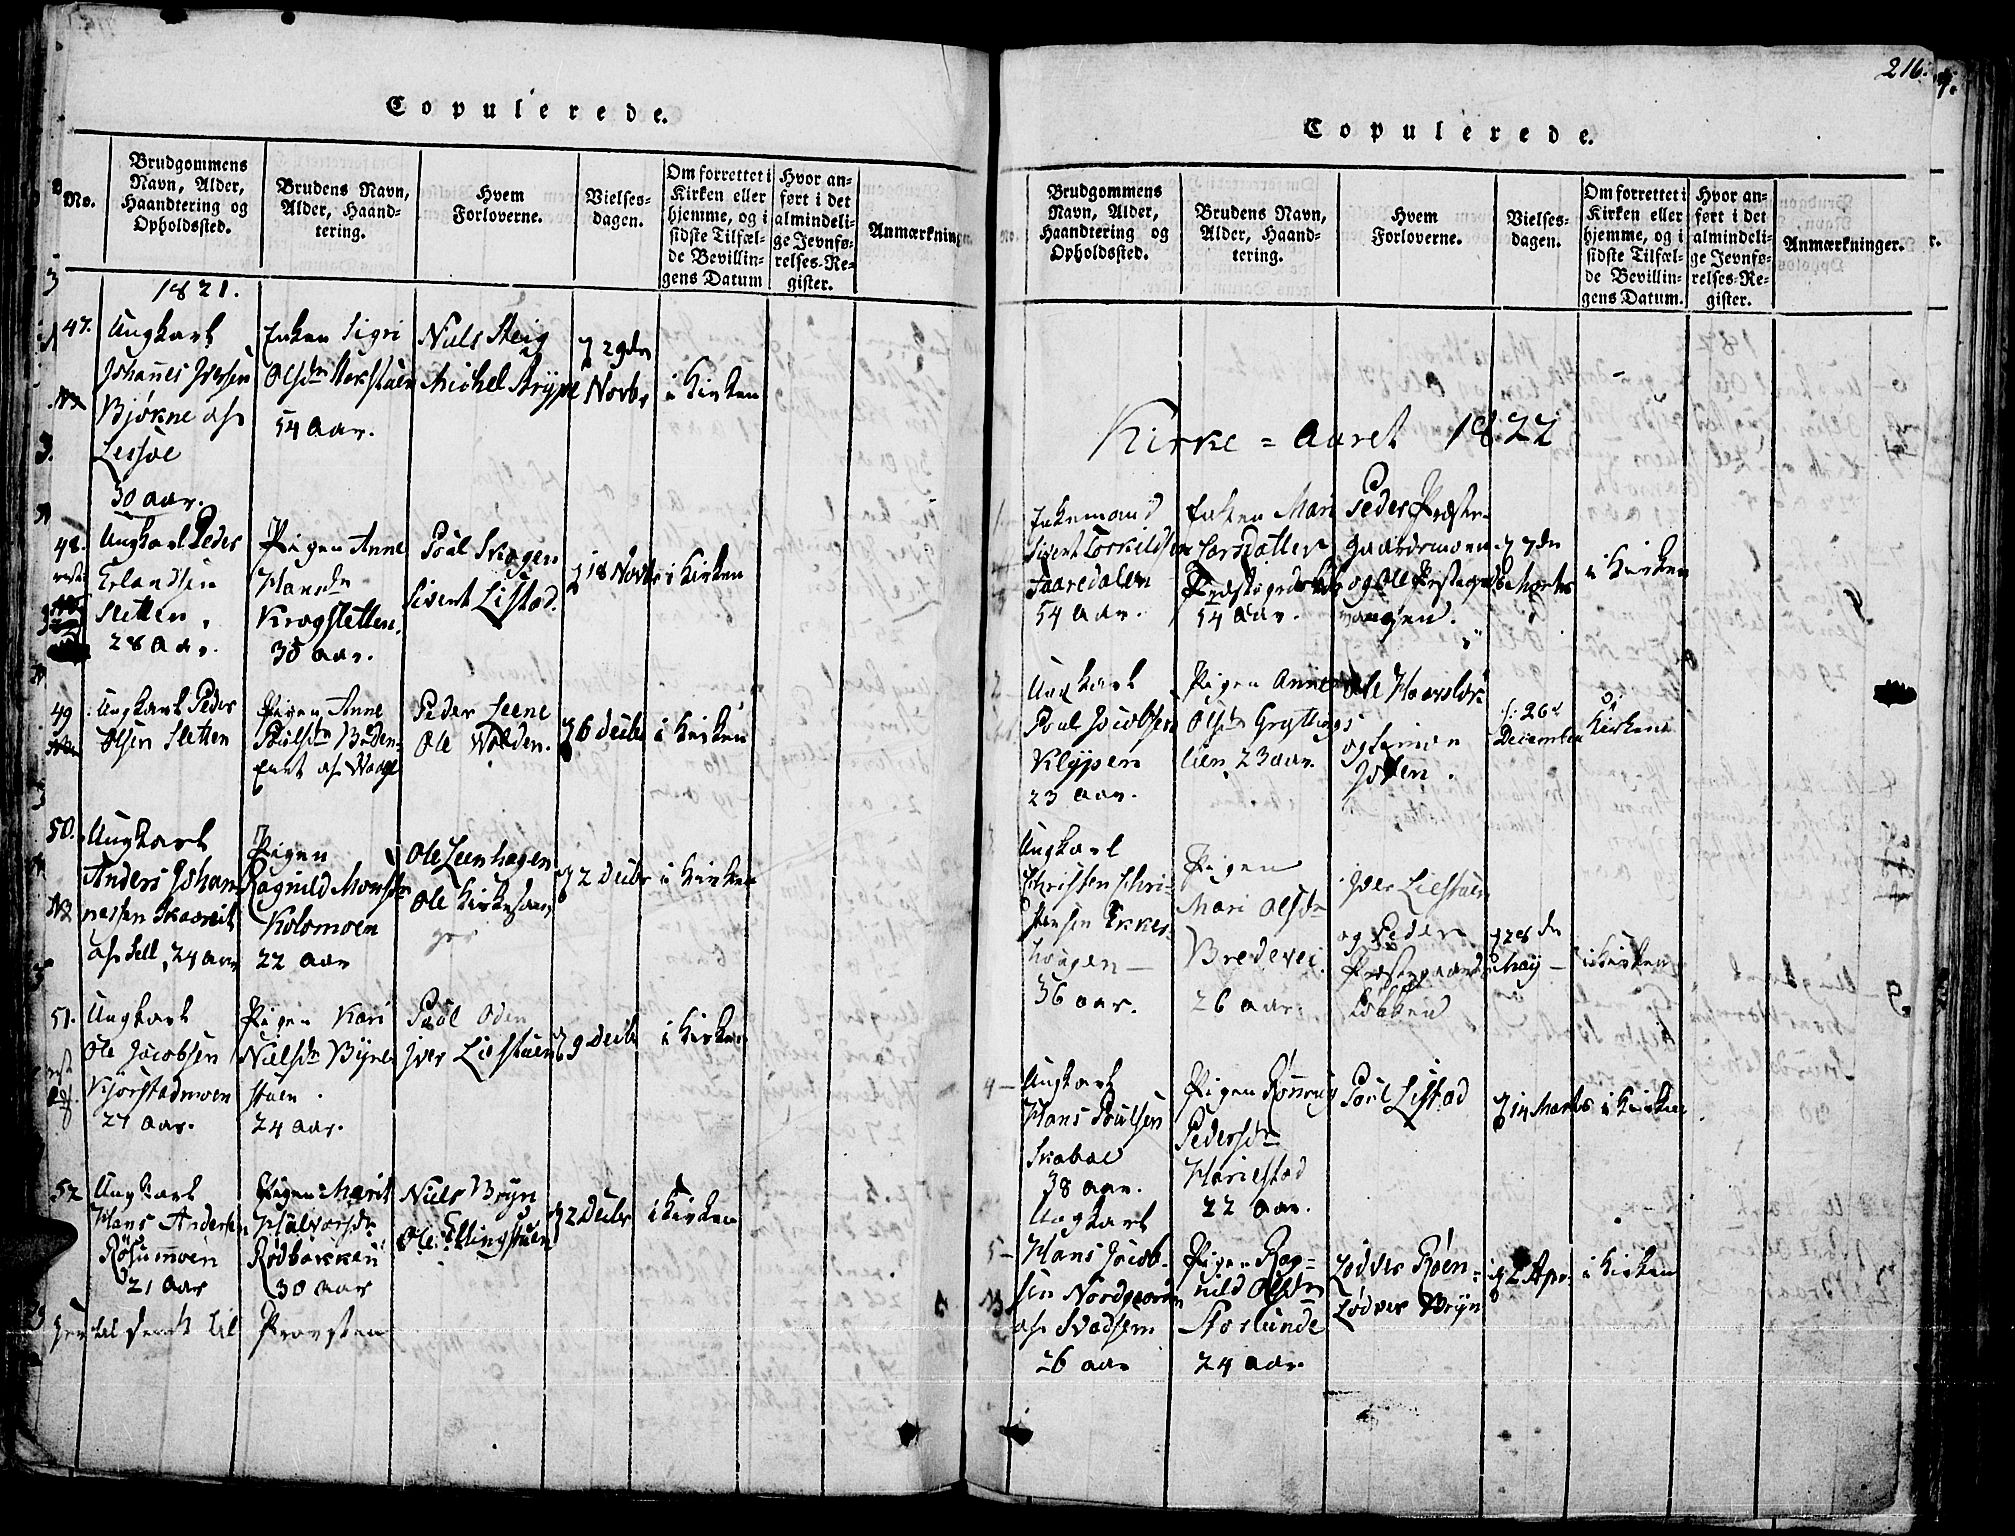 Copulerede.
No.
Brudgommens
Navn, Alder,
Haandtering og
Opholdssted.
Brudens Navn,
Alder, Haand-
tering.
Hvem
Forloverne.
Vielses-
dagen.
Om forrettet i
Kirken eller
hjemme, og i
sidste Tilfæl-
de Bevillin-
gens Datum
Hvor an-
ført i det
almindeli-
ge Jevnfø-
relses-Re-
gister.
Anmærkninger.
1821.
47.
Ungkarl
Johannes Iversen
Bjøkne af
Lessøe
30 aar.
Enken Sigri
Olsdr
54 aar.
Niels Steig
Michel Strype
29de
Novbr
i Kirken
48.
Ungkarl Peder
Erlandsen
Sletten,
28 aar.
Pigen Anne
Hansdr
Krogsletten.
30 aar.
Poul Skogen
Sivert Listad.
18 Novbr
i Kirken
49
Ungkarl Peder
Olsen Sletten
Pigen Anne
Poulsdr
af Waage
Peder Leene
Ole Wolden.
6 Decbr
i Kirken
50.
Ungkarl
Anders Johan-
nessen
af Sell, 24 aar
Pigen
Ragnild Monsdr
Kolomoen
22 aar
Ole Leenhagen
Ole Kirkesan-
ger
2 Decbr
i Kirken
51.
Ungkarl
Ole Jacobsen
Kjorstadmoen
27 aar.
Pigen Kari
Nielsdr Byre-
stuen.
24 aar.
Poul Oden
Iver Liestuen
9 Decbr
i Kirken
52
Ungkarl
Hans Andersen
Røsumoen
21 aar
Pigen Marit
Halvorsdr
Rødbakken
30 aar
Niels Bryn
Ole Ellingstuen
2 Decbr
i Kirken
til Provsten
216.
Copulerede.
No.
Brudgommens
Navn, Alder,
Haandtering og
Opholdssted.
Brudens Navn,
Alder, Haand-
tering.
Hvem
Forloverne.
Vielses-
dagen.
Om forrettet i
Kirken eller
hjemme, og i
sidste Tilfæl-
de Bevillin-
gens Datum.
Hvor an-
ført i det
almindeli-
ge Jevnfø-
relses-Re-
gister.
Anmærkninger.
Kirke = Aaret 1822
1
Enkemand
Sivert Torkildsen
Faaredalen
54 aar.
Enken Mari
Larsdatter
54 aar.
Peder Præste-
gaardsmoen
og Ole
vangen.
7de
Marts
i Kirken
2
Ungkarl
Poul Jacobsen
Klypen
23 aar.
Pigen Anne
Olsdr Grythaugs
lien, 23 aar.
Ole
og Simon
d: 26de
December
i
Kirken
Ungkarl
Christen Chri-
stensen Ekker-
hougen —
36 aar.
Pigen
Mari Olsdr
Bredevei.
26 aar.
Iver Liestuen
og Peder
Præstegaards
Løkken
28de
May —
i Kirken
4 —
Ungkarl
Hans Poulsen
Skaboe
38 aar.
Pigen Rønnoug
Pedersdr
Harilstad
22 aar.
Poul Listad
14 Marts
i Kirken
5 —
Ungkarl
Hans Jacob-
sen Nordgaarden
af Svadsem
26 aar
Pigen Rag-
nild Olsdr
Storlunde
24 aar.
Lodver Røen
Lødver Bryn
2 Apr.
i Kirken